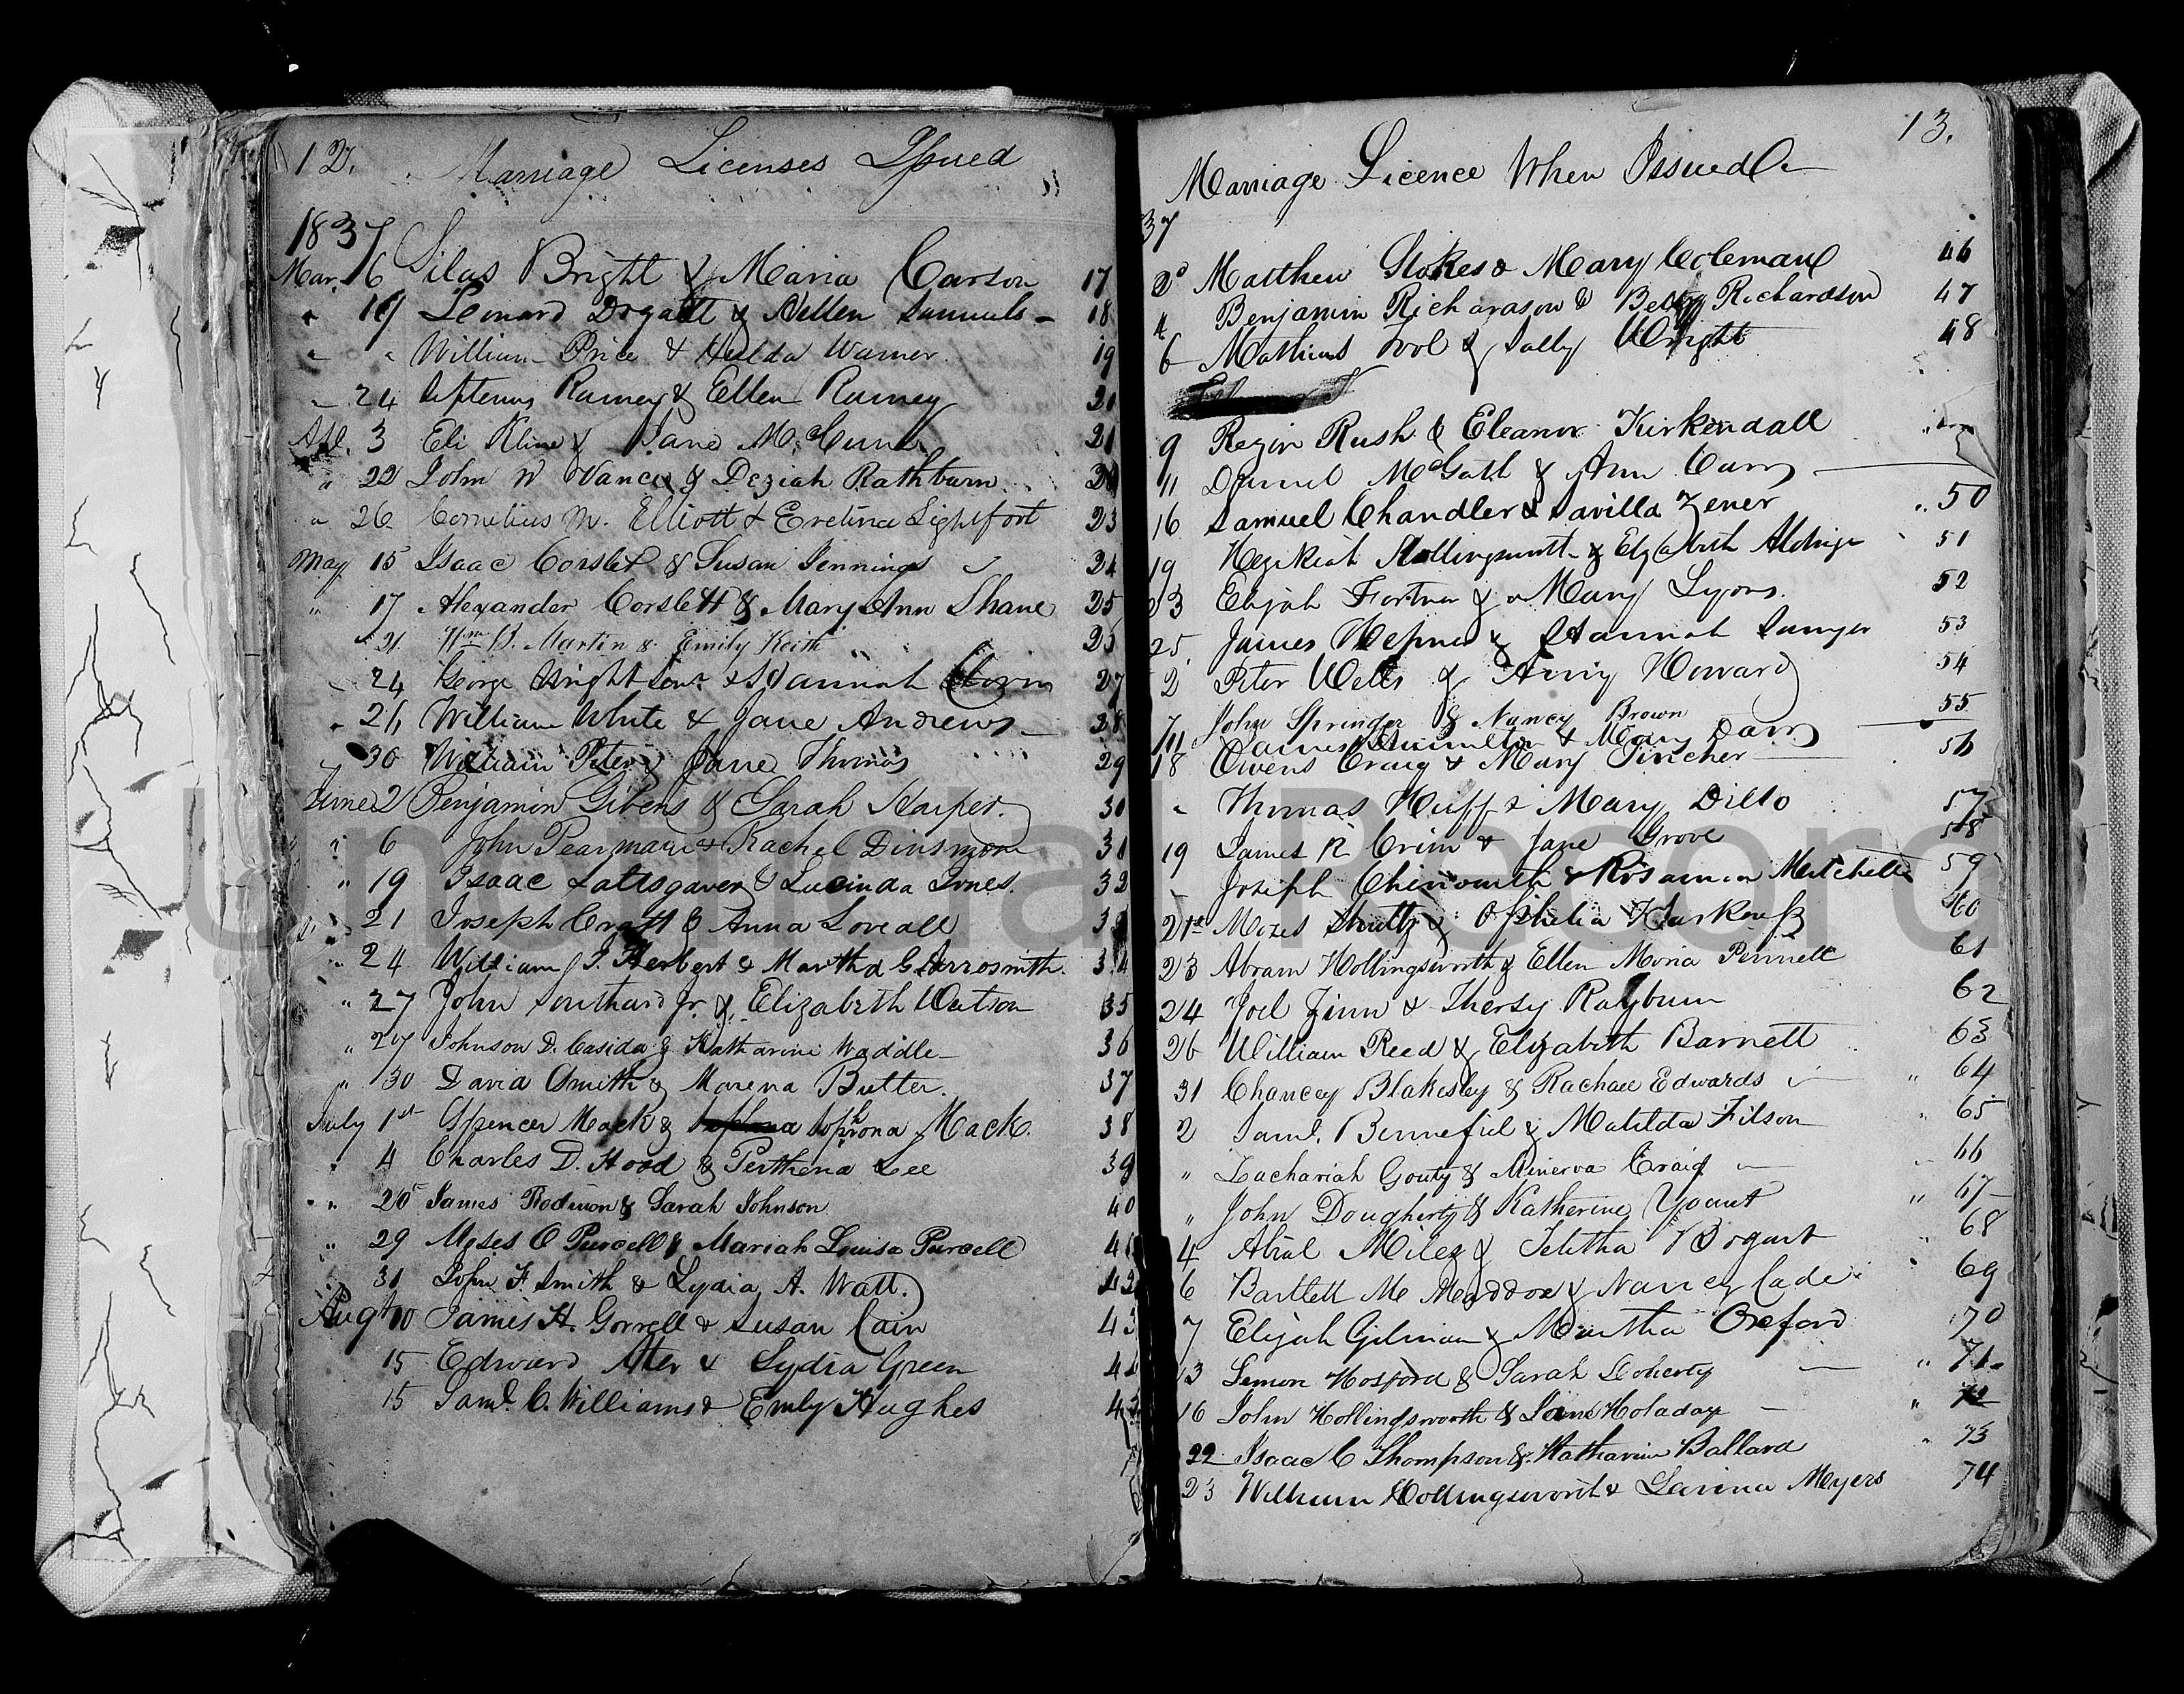 12.
Marriage Licenses Issued
1837
Mar. 16 Silas Bright & Maria Carson 17
" 19 Leonard Dogatt & Hellen Samuels - 18
" " William Price & Hulda Warner 19
" 24 Ramey & Ellen Ramey 20
Apl. 3 Eli Kline & Jane McCune 21
" 22 John W Vance & Deziah Rathburn 22
" 26 Cornelius M. Elliott & Evelina Lightfoot 23
May 15 Isaac Corslet & Susan Jennings 24
" 17 Alexander Corslett & Mary Ann Shane 25
" 21 Wm B. Martin & Emily Keith 26
" 24 George Wright Senr. & Hannah 27
" 26 William White & Jane Andrews 28
" 30 William Peter & Jane Thomas 29
June 2 Benjamin Gibens & Sarah Harper. 30
" 6 John Pearman & Rachel Dinsmore 31
" 19 Isaac Latisgaver & Lucinda Jones. 32
" 21 Joseph Craft & Anna Loveall 33
" 24 William J. Herbert & Martha G. Arrosmith. 34
" 27 John Southard Jr. & Elizabeth Watson 35
" 27 Johnson D. Casida & Katharine Waddle 36
" 30 David Smith & Marena Butler. 37
July 1st Spencer Mack & Sophrona Mack. 38
" 4 Charles D. Hood & Perthena Lee 39
" 20 James Rodmon & Sarah Johnson 40
" 29 Moses O Purcell & Mariah Louisa Purcell 41
" 31 John F. Smith & Lydia A. Watt. 42
Augt 10 James H. Gorrell & Susan Cain 43
15 Edward Ater & Lydia Green 44
15 Saml. C. Williams & Emly Hughes 45
13.
Marriage Licence When Issued
37
2d Matthew Stokes & Mary Coleman 46
4 Benjamin Richardson & Betsy Richardson 47
6 Mathias Fool & Sally Wright 48
9 Rezin Rush & Eleanor Kirkendall
11 Daniel McGath & Ann Carr
16 Samuel Chandler & Savilla Zener " 50
19 Hezikiah Hollingsworth & Elizabeth Aldrige 51
23 Elijah Fortner & Mary Lyons. 52
25 James Hepner & Hannah Sanger 53
2 Peter Wells & Amy Howard 54
7 John Springer & Nancy Brown 55
11 James Hamilton & Mary Darr
18 Owens Craig & Mary Fincher 56
" Thomas Huff & Mary Dillo 57
19 James R Crim & Jane Grove 58
" Joseph Chenowith & Rosanna Mitchell 59
21st Mozes Shultz & Ophelia 60
23 Abram Hollingsworth & Ellen Moria Pennell 61
24 Joel Zinn & Thersy Rayburn 62
26 William Reed & Elizabeth Barnett 63
31 Chancey Blakesley & Rachael Edwards " 64
2 Saml. Bennefiel & Matilda Filson " 65
" Zachariah Gouty & Minerva Craig 66
" John Dougherty & Katherine Yount " 67
4 Abial Miles & Telitha Bogart 68
6 Bartlett M Maddox & Nancy Cade 69
7 Elijah Gilman & Martha Oxford 70
13 Lemon Hosford & Sarah Doherty " 71
16 John Hollingsworth & Jane Holaday " 72
22 Isaac C Thompson & Katharine Ballard " 73
23 William Hollingsworth & Lavina Meyers 74